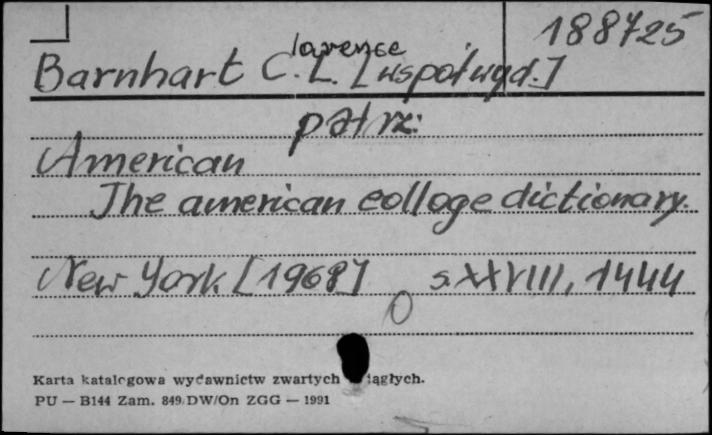 188725
larence
Barnhart C. L. [współwyd.]
patrz:
American
The american colloge dictionary.
New York [1968] s. XXVIII, 1444
0
Karta katalogowa wydawnictw zwartych ciągłych.
PU — B144 Zam. 849/DW/On ZGG — 1991